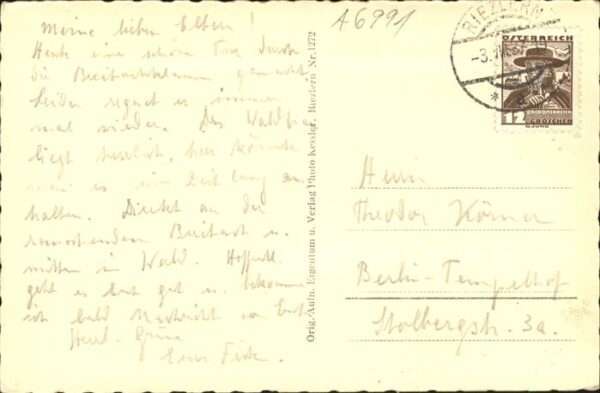 Meine lieben Eltern!
Heute eine schöne Tour durch
die Breitachklamm gemacht.
Leider regnet es immer
mal wieder. Das Waldhaus
liegt herrlich, hier könnte
man es eine Zeit lang aus
halten. Direkt an der
rauschenden Breitach u.
mitten im Wald. Hoffentl.
geht es Euch gut u. bekomme
ich bald Nachricht von Euch.
Herzl. Grüße
Euer
A6991
RIEZLERN
-3.
ÖSTERREICH
12
GROSCHEN
Orig.-Aufn. Eigentum u. Verlag Photo Kessler, Riezlern Nr. 1272
Herrn
Theodor Körner
Berlin-Tempelhof
Stolbergstr. 3a.